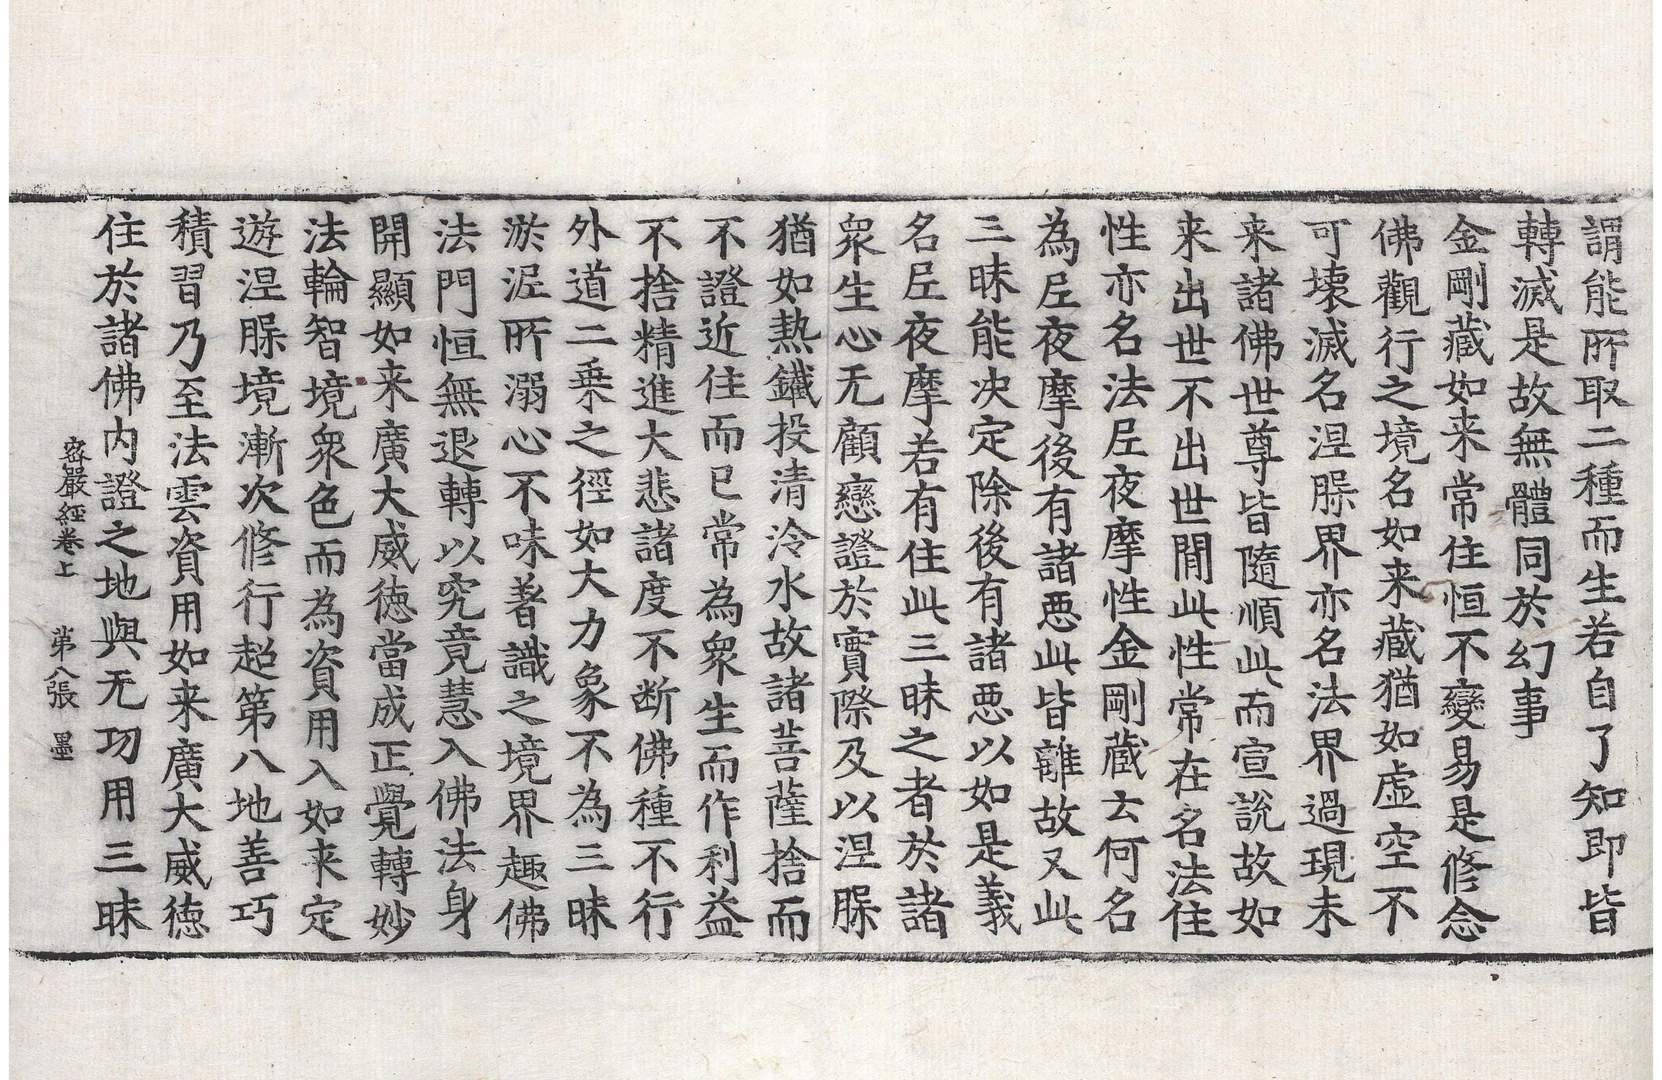 謂能所取二種而生若自了知即皆
轉滅是故無體同於幻事
金剛藏如来常住恒不變易是修念
佛觀行之境名如来藏猶如虛空不
可壞滅名涅槃界亦名法界過現未
来諸佛世尊皆隨順此而宣說故如
来出世不出世閒此性常在名法住
性亦名法尼夜摩性金剛藏云何名
為尼夜摩後有諸惡此皆離故又此
三昧能決定除後有諸惡以如是義
名尼夜摩若有住此三昧之者於諸
衆生心无顧戀證於實際及以涅槃
猶如熱鐵投清冷水故諸菩薩捨而
不證近住而已常為衆生而作利益
不捨精進大悲諸度不斷佛種不行
外道二乗之徑如大力象不為三昧
淤泥所溺心不味著識之境界趣佛
法門恒無退轉以究竟慧入佛法身
開顯如来廣大威德當成正覺轉妙
法輪智境衆色而為資用入如来定
遊涅槃境漸次修行超第八地善巧
積習乃至法雲資用如来廣大威德
住於諸佛內證之地與无功用三昧
密嚴經卷上　第八張　墨